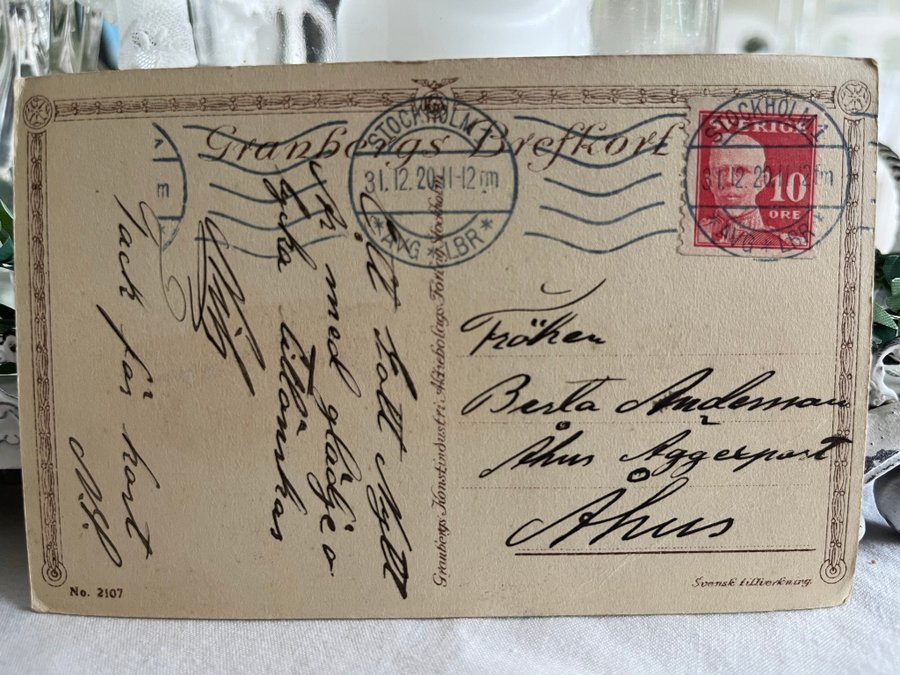 Granbergs Brefkort
STOCKHOLM 1
31.12.20 11-12 fm
* AVG * LBR *
STOCKHOLM 1
31.12.20 11-12 fm
* AVG * LBR *
m
SVERIGE
10
ÖRE
Ett Gott Nytt
År med glädje o.
lycka tillönskas
Tack för kort
Granbergs Konstindustri-Aktiebolags Förlag, Stockholm
Fröken
Berta Andersson
Åhus Äggexport
Åhus
No. 2107
Svensk tillverkning.